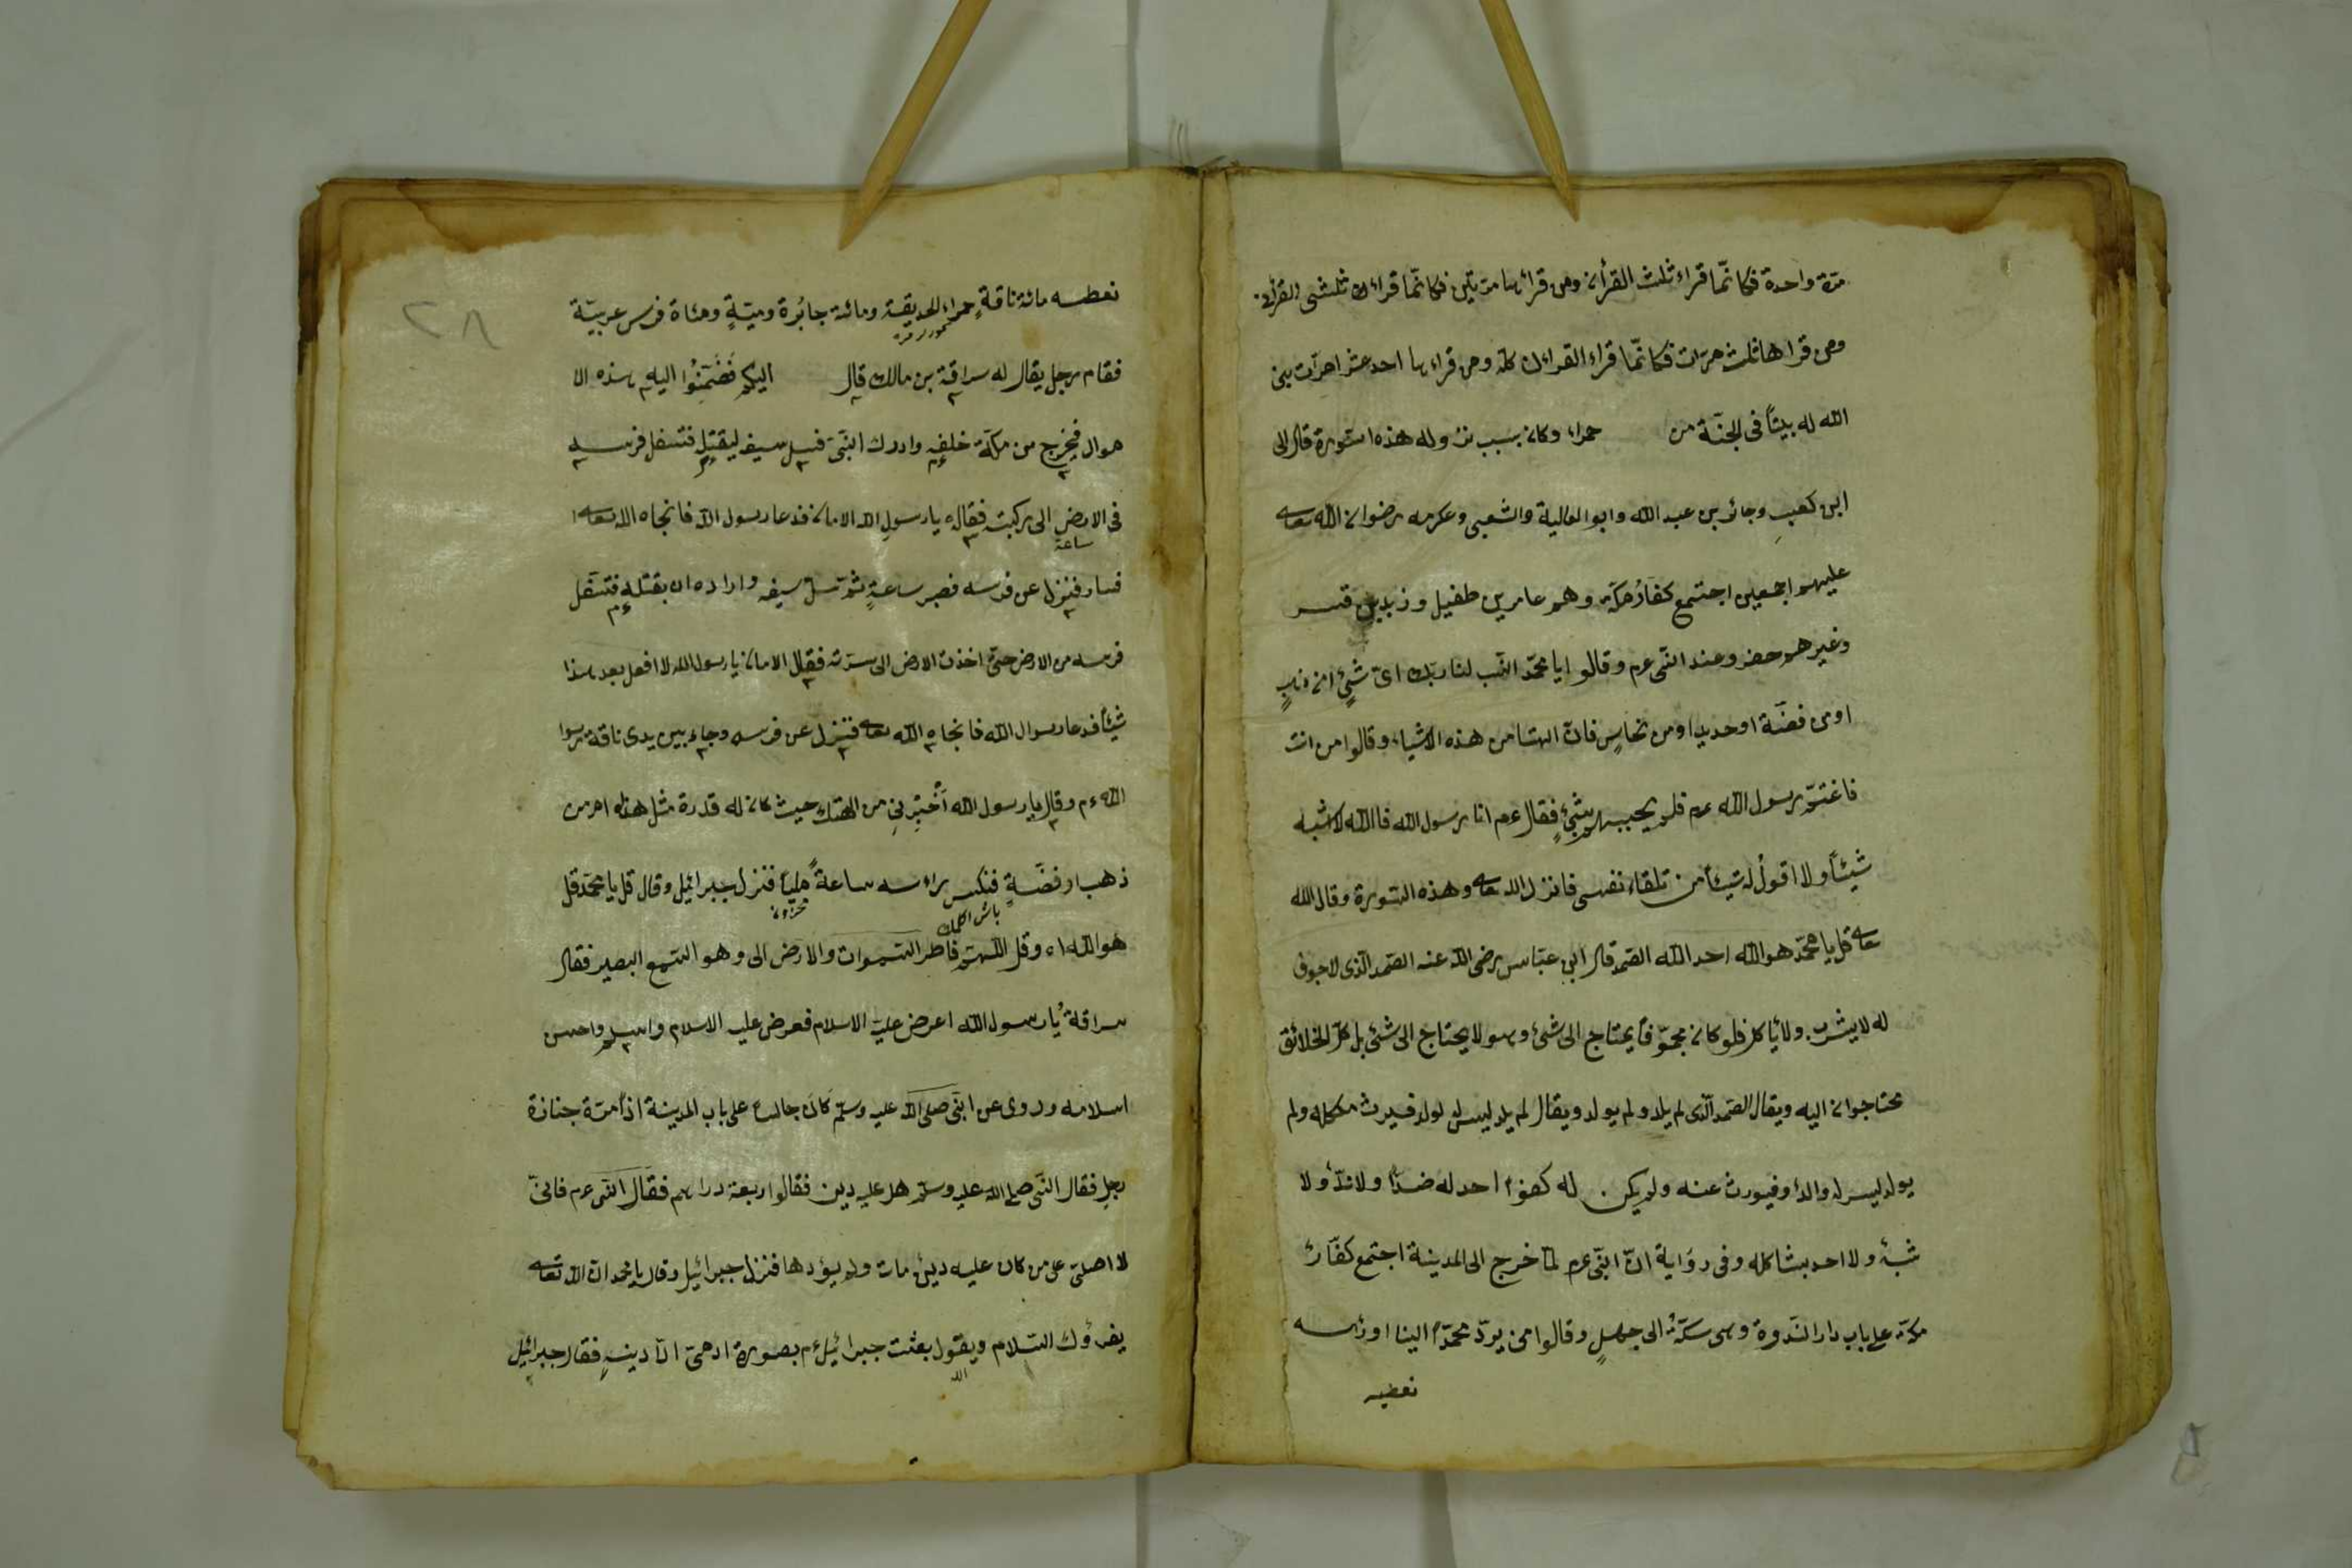 مرّة واحدة فكانّما قراء ثلث القرأن ومن قرائها مرّتين فكانّما قراءك ثلثى القرأن
ومن قراها ثلث مرّات فكانّما قراء القراءن كلّه ومن قراءها احد عشر امرّات بنى
الله له بيتًا فى الجنّة من حمراء وكان بسبب نزوله هذه السّورة قال الى
ابن كعب وجائر بن عبد الله وابو العالية والشعبى وعكرمه رضوان الله تعالى
عليهم اجمعين اجتمع كفّار مكّة وهم عامر بن طفيل وزيد بن قيس
وغيرهم حضروعند النّبى عم وقالوا يا محمّد انسب لنا ربّك اىّ شئ امن ذهب
اومن فضّة اوحديد اومن نحاس فانّ الهتنا من هذه الاشياء وقالوا من انت
فاغتمّ رسول الله عم فلم يجيبهم بشئ فقال عم انا رسول الله فاالله لاشبه
شيئًا ولا اقول له شيئًا من تلقاء نفسى فانزل الله تعالى وهذه السّورة وقال الله
تعالى قل يا محمّد هو الله احد الله الصّمد قال ابن عبّاس رضى الله عنه الصّمد الّذى لاجوف
له لايشرب ولايأكل فلوكان مجوّفا يحتاج الى شئ وهو لايحتاج الى شئ بل كلّ الخلائق
محتاجوان اليه ويقال الصّمد الّذى لم يلد ولم يولد ويقال لم يلد ليس له ولد فيرث ملكه ولم
يولد ليس له والد وفيورث عنه ولم يكن له كفوا احد له ضدّ ولاندّ ولا
شبه ولا احد بشاكله وفى رواية انّ النّبى عم لمّا خرج الى المدينة اجتمع كفّار
مكّة على باب دار النّدوة وهى سكّة الى جهل وقالوا من يردّ محمّدًا الينا اورأسه
نعطيه
نعطه مائة ناقة حمراء الحديقة ومائة جائرة وميّة ومئاة فرس عربيّة
فقام رجل يقال له سراقة بن مالك قال اليكم فضمّنوا اليه بهذه الا
هوال فيخرج من مكّة خلفه وادرك النّبى فسل سيفه ليقتله فتسفل فرسه
فى الارض الى ركبته فقال يا رسول الله الامان فدعا رسول الله فانجاه الله تعالى
ساعة
فسار فنزل عن فرسه فصبر ساعة ثمّ سلّ سيفه واراده ان يقتله فتسفل
فرسه من الارض حتى اخذت الارض الى سرّته فقال الامان يا رسول الله لا افعل بعد هذا
شيئًا فدعا رسوال الله فانجاه الله تعالى فنزل عن فرسه وجاء بين يدى ناقة رسوا
الله عم وقال يا رسول الله أخبرنى من الهك حيث كان له قدرة مثل هذا امر من
ذهب او فضّة فنكس راءسه ساعة مليا فنزل جبرائيل وقال قل يا محمّد قل
هو الله اه وقل اللّهم فاطر السّموات والارض الى وهو السّميع البصير فقال
سراقة يا رسول الله اعرض علىّ الاسلام فعرض عليه الاسلام واسلم واحسن
اسلامه وروى عن النّبى صلى الله عليه وسلم كان جالسا على باب المدينة اذا مرّة جنازة
رجل فقال النّبى صلى الله عليه وسلم هل عليه دين فقالوا اربعة دراهم فقال النّبى عم فانىّ
لا اصلى على من كان عليه دين مات ولم يؤدها فنزل جبرائيل وقال يا محمد ان الله تعالى
يقرؤك السّلام ويقول بعثت جبرائيل عم بصورة ادمىّ ادّا دينه فقال جبرائيل
٢٨